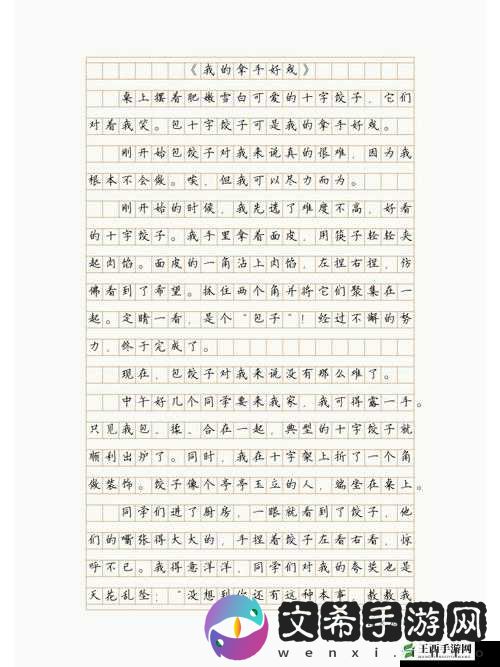 《我的拿手好戏》
桌上摆着肥嫩雪白可爱的十字饺子，它们
对着我笑。包十字饺子可是我的拿手好戏。
刚开始包饺子对我来说真的很难，因为我
根本不会做。唉，但我可以尽力而为。
刚开始的时候，我先选了难度不高，好看
的十字饺子。我手里拿着面皮，用筷子轻轻夹
起肉馅。面皮的一角沾上肉馅，左捏右捏，仿
佛看到了希望。抓住两个角并将它们聚集在一
起。定睛一看，是个“包子”！经过不懈的努
力，终于完成了。
现在，包饺子对我来说没有那么难了。
中午好几个同学要来我家，我可得露一手。
只见我包、揉、合在一起，典型的十字饺子就
顺利出炉了。同时，我在十字架上折了一个角
做装饰。饺子像个亭亭玉立的人，端坐在桌上。
同学们进了厨房，一眼就看到了饺子，他
们的嘴张得大大的，手捏着饺子左看右看，惊
呼不已。我得意洋洋，同学们对我的夸奖也是
天花乱坠：“没想到你还有这种本事，教教我
文希手游网
wenxi
王酉手游网